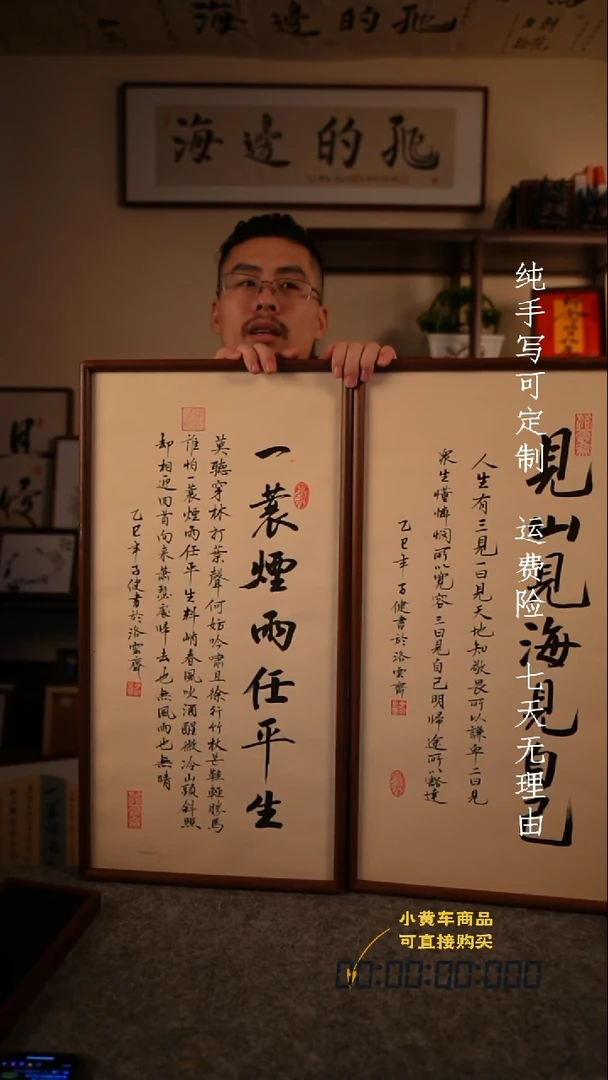 海邊的
海邊的
一蓑煙雨任平生
莫聽穿林打葉聲何妨吟嘯且徐行竹杖芒鞋輕勝馬
誰怕一蓑煙雨任平生料峭春風吹酒醒微冷山頭斜照
却相迎回首向來蕭瑟處歸去也無風雨也無晴
乙巳年子健書於洛雲齋
見山見海見自己
人生有三見一曰見天地知敬畏所以謙卑二曰見
衆生懂憐憫所以寬容三曰見自己明歸途所以豁達
乙巳年子健書於洛雲齋
纯手写可定制 运费险 七天无理由
小黄车商品
可直接购买
00:00:00:000